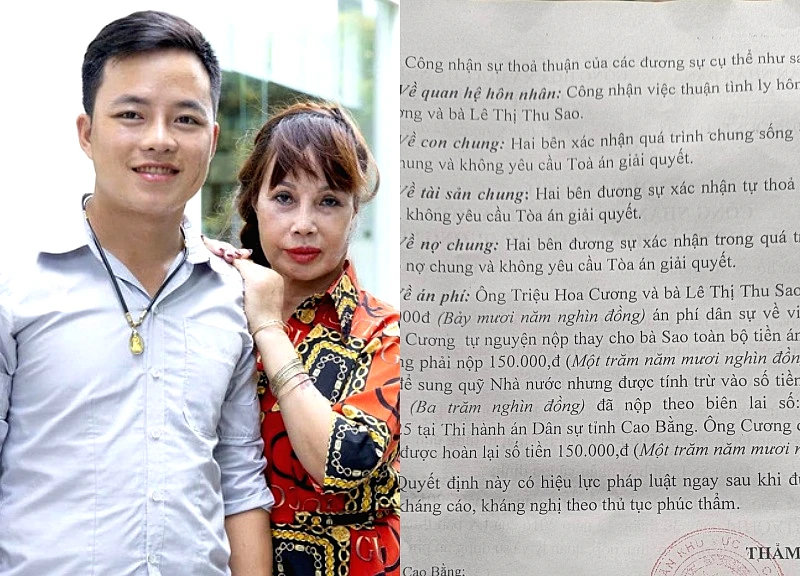 Công nhận sự thoả thuận của các đương sự cụ thể như sa
Về quan hệ hôn nhân: Công nhận việc thuận tình ly hôn
ng và bà Lê Thị Thu Sao.
Về con chung: Hai bên xác nhận quá trình chung sống
hung và không yêu cầu Toà án giải quyết.
Về tài sản chung: Hai bên đương sự xác nhận tự thoả
không yêu cầu Tòa án giải quyết.
Về nợ chung: Hai bên đương sự xác nhận trong quá tr
nợ chung và không yêu cầu Tòa án giải quyết.
Về án phí: Ông Triệu Hoa Cương và bà Lê Thị Thu Sao
000đ (Bảy mươi năm nghìn đồng) án phí dân sự về vi
Cương tự nguyện nộp thay cho bà Sao toàn bộ tiền án
ng phải nộp 150.000,đ (Một trăm năm mươi nghìn đồn
để sung quỹ Nhà nước nhưng được tính trừ vào số tiền
(Ba trăm nghìn đồng) đã nộp theo biên lai số:
5 tại Thi hành án Dân sự tỉnh Cao Bằng. Ông Cương đ
được hoàn lại số tiền 150.000,đ (Một trăm năm mươi n
Quyết định này có hiệu lực pháp luật ngay sau khi đư
kháng cáo, kháng nghị theo thủ tục phúc thẩm.
THẨM
Cao Bằng;